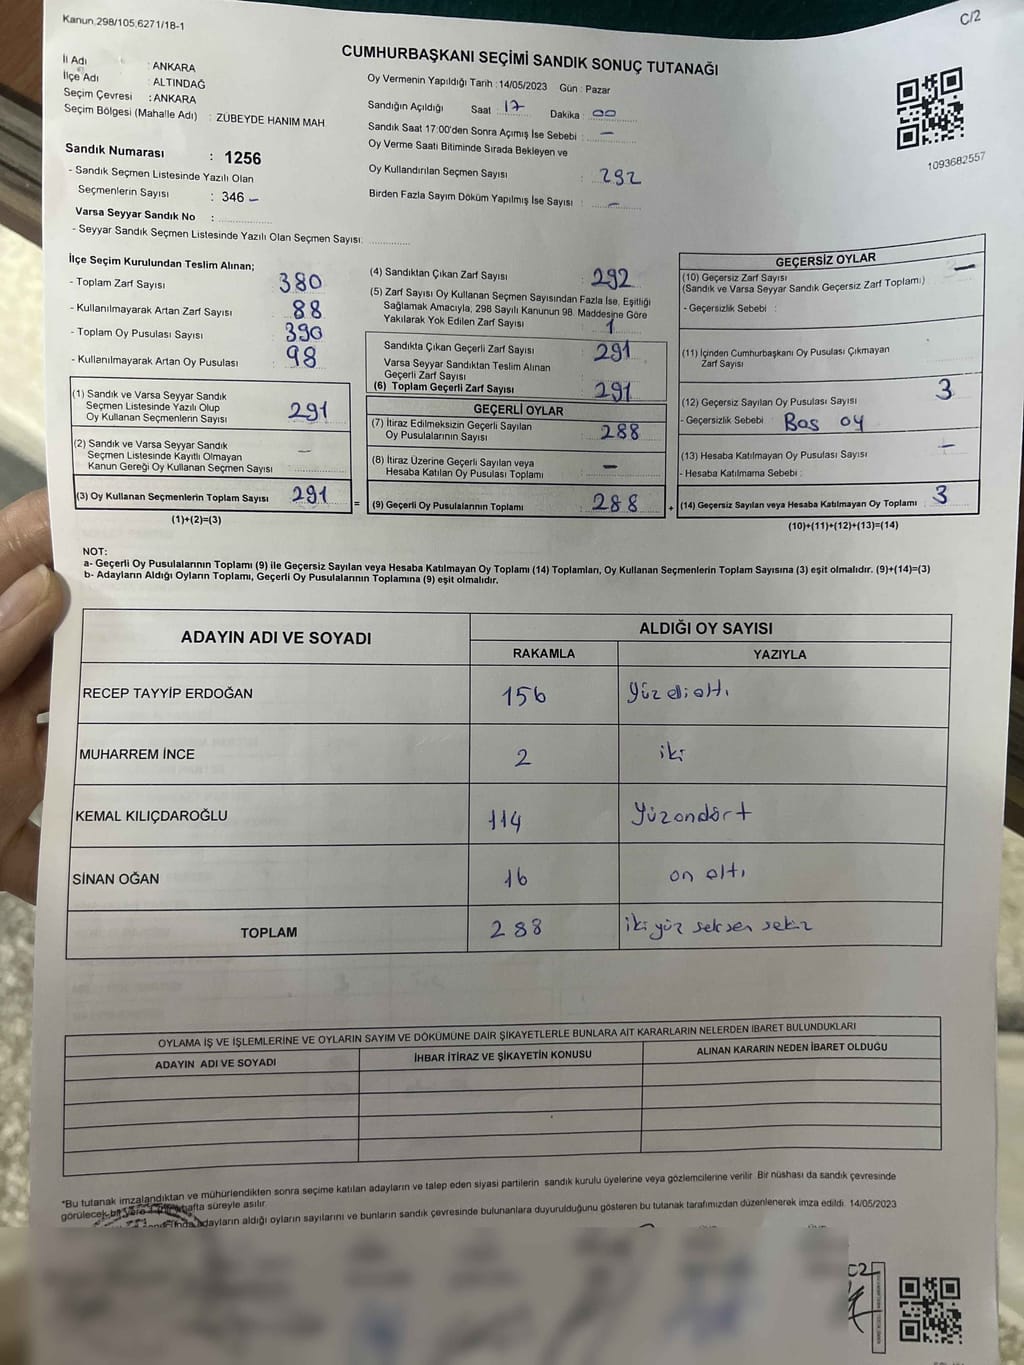 Kanun.298/105,6271/18-1
C/2
CUMHURBAŞKANI SEÇİMİ SANDIK SONUÇ TUTANAĞI
İl Adı : ANKARA
İlçe Adı : ALTINDAĞ
Seçim Çevresi : ANKARA
Seçim Bölgesi (Mahalle Adı) : ZÜBEYDE HANIM MAH.
Oy Vermenin Yapıldığı Tarih : 14/05/2023 Gün : Pazar
Sandığın Açıldığı Saat 17 Dakika : 00
Sandık Saat 17:00'den Sonra Açımış İse Sebebi : —
Oy Verme Saati Bitiminde Sırada Bekleyen ve
Oy Kullandırılan Seçmen Sayısı : 292
Birden Fazla Sayım Döküm Yapılmış İse Sayısı : —
1093682557
Sandık Numarası : 1256
- Sandık Seçmen Listesinde Yazılı Olan
Seçmenlerin Sayısı : 346 –
Varsa Seyyar Sandık No :
- Seyyar Sandık Seçmen Listesinde Yazılı Olan Seçmen Sayısı:
İlçe Seçim Kurulundan Teslim Alınan;
- Toplam Zarf Sayısı 380
- Kullanılmayarak Artan Zarf Sayısı : 88
- Toplam Oy Pusulası Sayısı : 390
- Kullanılmayarak Artan Oy Pusulası : 98
(1) Sandık ve Varsa Seyyar Sandık
Seçmen Listesinde Yazılı Olup
Oy Kullanan Seçmenlerin Sayısı : 291
(2) Sandık ve Varsa Seyyar Sandık
Seçmen Listesinde Kayıtlı Olmayan
Kanun Gereği Oy Kullanan Seçmen Sayısı : —
(3) Oy Kullanan Seçmenlerin Toplam Sayısı : 291 =
(1)+(2)=(3)
(4) Sandıktan Çıkan Zarf Sayısı : 292
(5) Zarf Sayısı Oy Kullanan Seçmen Sayısından Fazla İse, Eşitliği
Sağlamak Amacıyla, 298 Sayılı Kanunun 98. Maddesine Göre
Yakılarak Yok Edilen Zarf Sayısı : 1
Sandıkta Çıkan Geçerli Zarf Sayısı : 291
Varsa Seyyar Sandıktan Teslim Alınan
Geçerli Zarf Sayısı :
(6) Toplam Geçerli Zarf Sayısı : 291
GEÇERLİ OYLAR
(7) İtiraz Edilmeksizin Geçerli Sayılan
Oy Pusulalarının Sayısı : 288
(8) İtiraz Üzerine Geçerli Sayılan veya
Hesaba Katılan Oy Pusulası Toplamı : —
(9) Geçerli Oy Pusulalarının Toplamı : 288 +
GEÇERSİZ OYLAR
(10) Geçersiz Zarf Sayısı —
(Sandık ve Varsa Seyyar Sandık Geçersiz Zarf Toplamı)
- Geçersizlik Sebebi :
(11) İçinden Cumhurbaşkanı Oy Pusulası Çıkmayan
Zarf Sayısı
(12) Geçersiz Sayılan Oy Pusulası Sayısı 3
- Geçersizlik Sebebi : Boş oy
(13) Hesaba Katılmayan Oy Pusulası Sayısı —
- Hesaba Katılmama Sebebi :
(14) Geçersiz Sayılan veya Hesaba Katılmayan Oy Toplamı : 3
(10)+(11)+(12)+(13)=(14)
NOT:
a- Geçerli Oy Pusulalarının Toplamı (9) ile Geçersiz Sayılan veya Hesaba Katılmayan Oy Toplamı (14) Toplamları, Oy Kullanan Seçmenlerin Toplam Sayısına (3) eşit olmalıdır. (9)+(14)=(3)
b- Adayların Aldığı Oyların Toplamı, Geçerli Oy Pusulalarının Toplamına (9) eşit olmalıdır.
ADAYIN ADI VE SOYADI
ALDIĞI OY SAYISI
RAKAMLA YAZIYLA
RECEP TAYYİP ERDOĞAN 156 Yüz elli altı
MUHARREM İNCE 2 iki
KEMAL KILIÇDAROĞLU 114 Yüzondört
SİNAN OĞAN 16 on altı
TOPLAM 288 iki yüz seksen sekiz
OYLAMA İŞ VE İŞLEMLERİNE VE OYLARIN SAYIM VE DÖKÜMÜNE DAİR ŞİKAYETLERLE BUNLARA AİT KARARLARIN NELERDEN İBARET BULUNDUKLARI
ADAYIN ADI VE SOYADI İHBAR İTİRAZ VE ŞİKAYETİN KONUSU ALINAN KARARIN NEDEN İBARET OLDUĞU
*Bu tutanak imzalandıktan ve mühürlendikten sonra seçime katılan adayların ve talep eden siyasi partilerin sandık kurulu üyelerine veya gözlemcilerine verilir. Bir nüshası da sandık çevresinde
görülecek bir yere 1 hafta süreyle asılır.
adayların aldığı oyların sayılarını ve bunların sandık çevresinde bulunanlara duyurulduğunu gösteren bu tutanak tarafımızdan düzenlenerek imza edildi. 14/05/2023